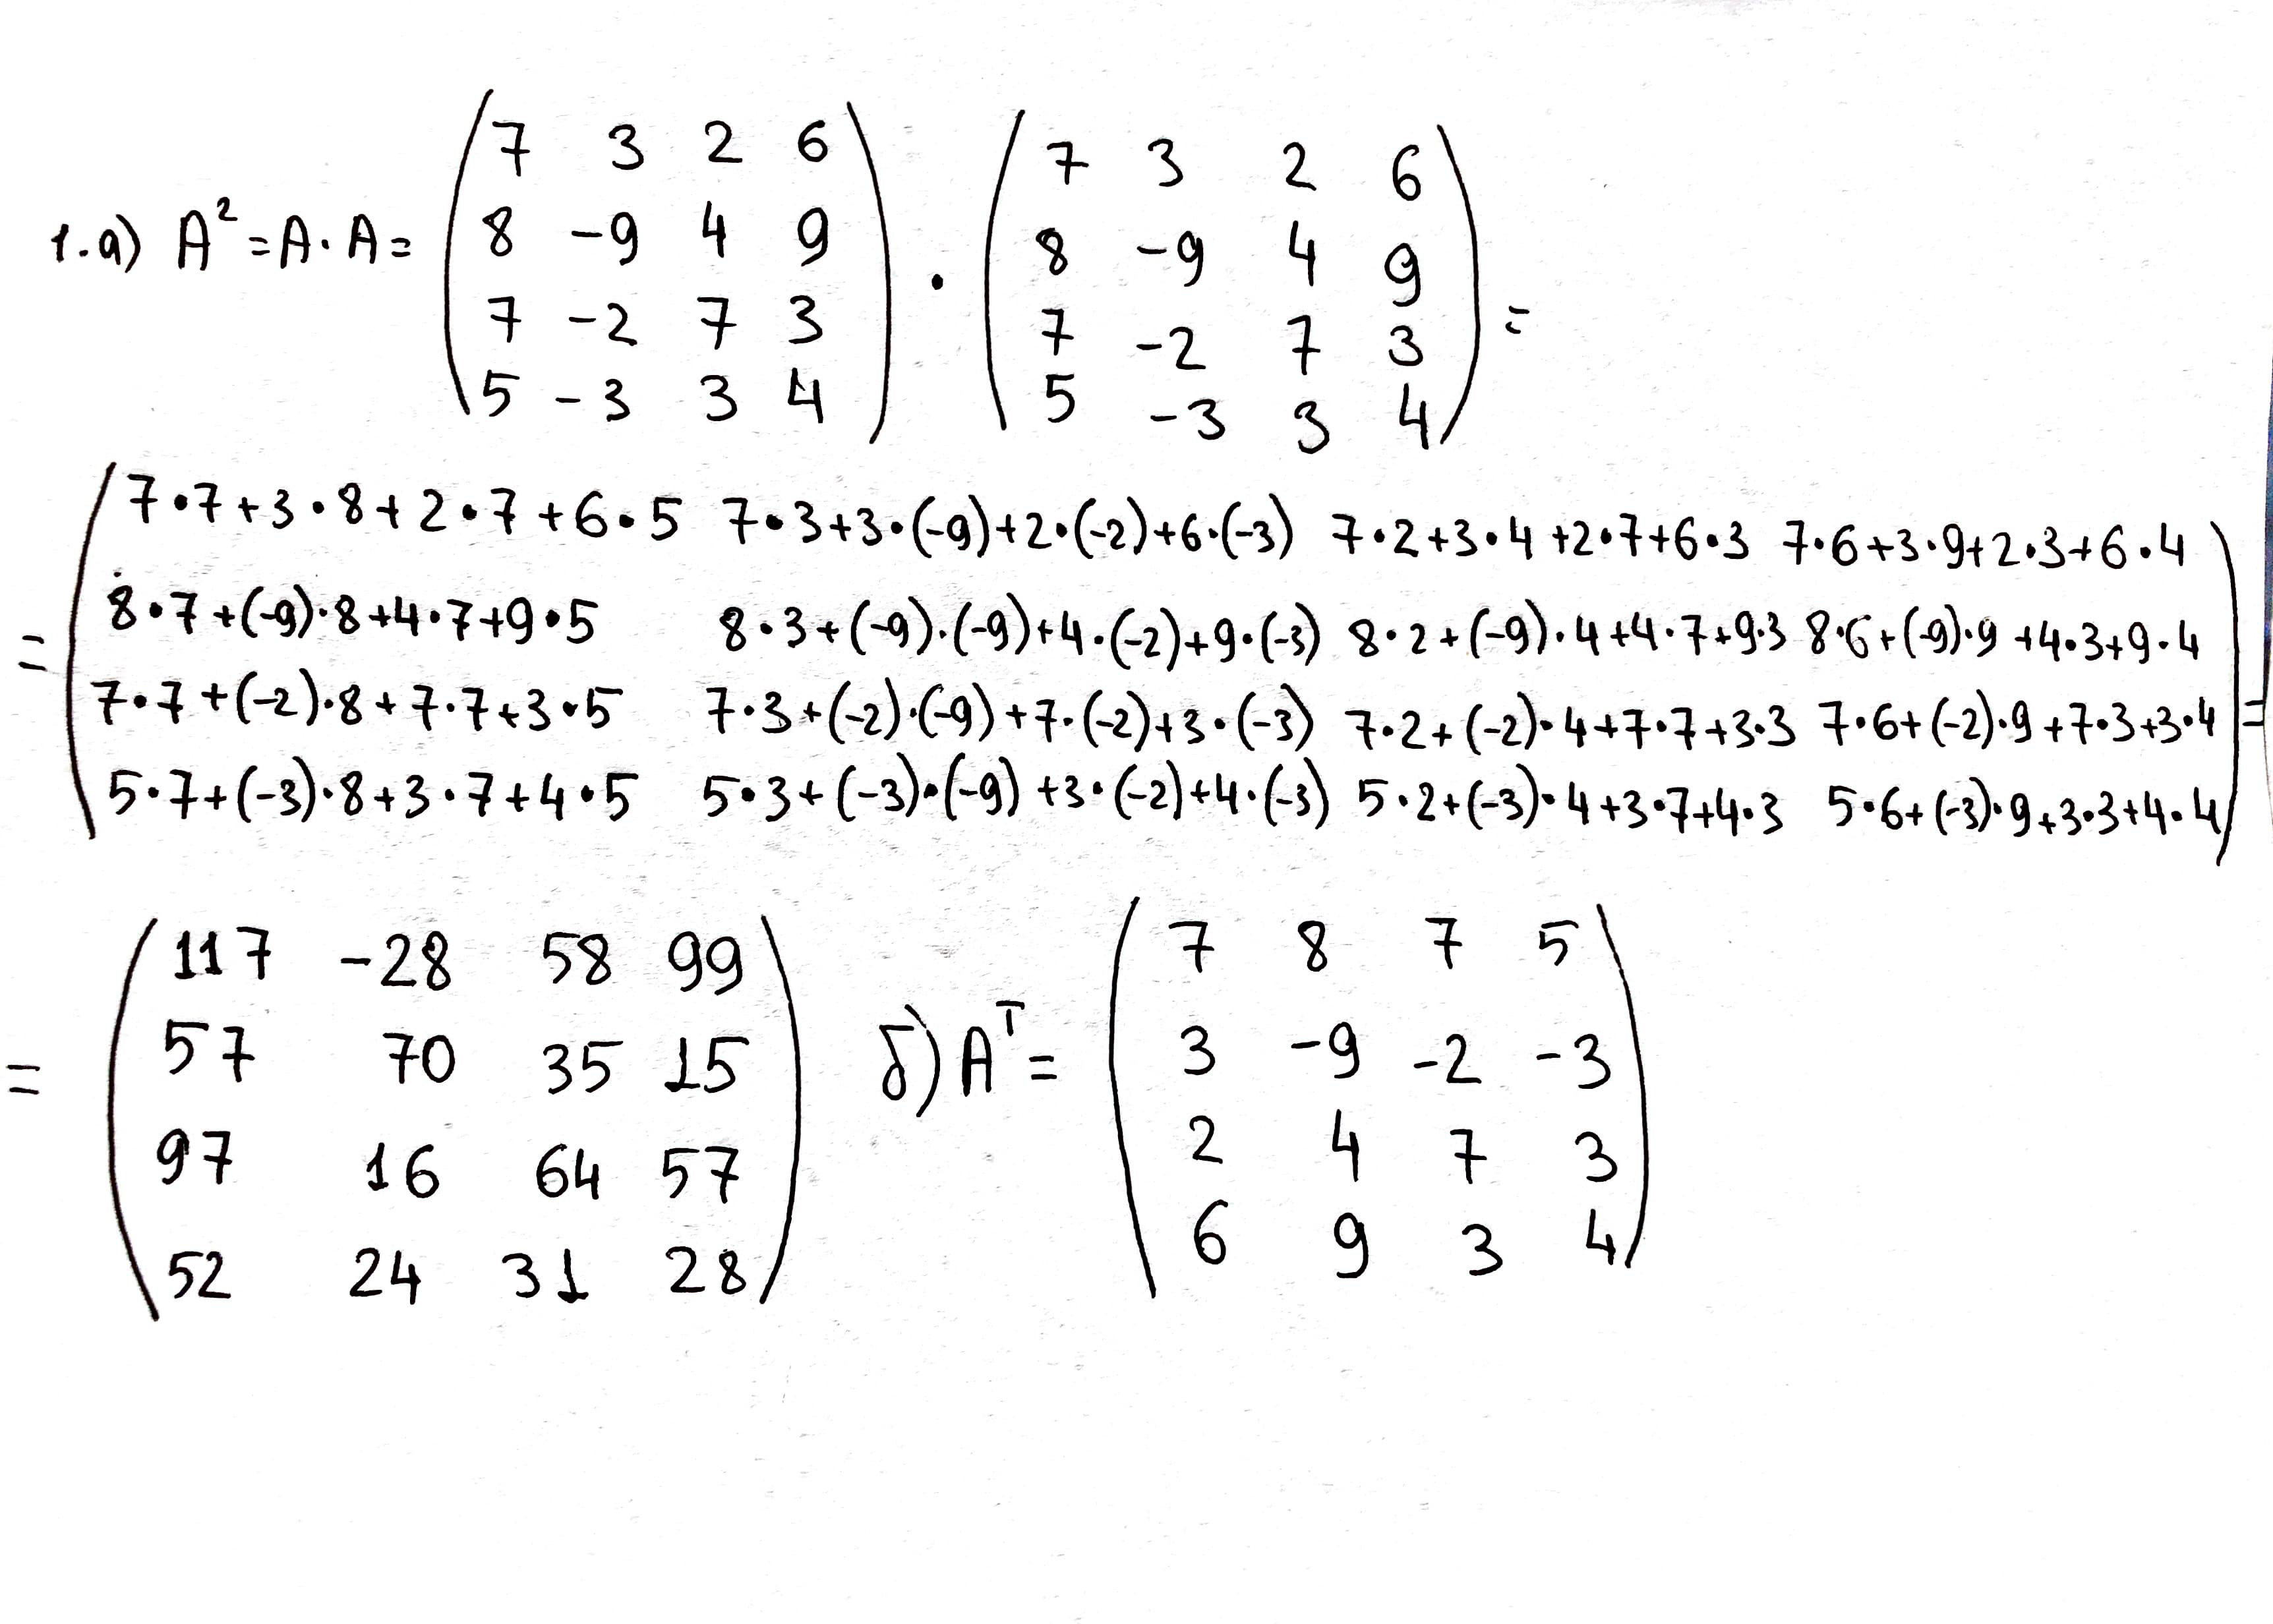 1.а) A² = A · A = ( 7 3 2 6 ) · ( 7 3 2 6 ) =
8 -9 4 9    8 -9 4 9
7 -2 7 3    7 -2 7 3
5 -3 3 4    5 -3 3 4
= ( 7·7+3·8+2·7+6·5 7·3+3·(-9)+2·(-2)+6·(-3) 7·2+3·4+2·7+6·3 7·6+3·9+2·3+6·4
8·7+(-9)·8+4·7+9·5 8·3+(-9)·(-9)+4·(-2)+9·(-3) 8·2+(-9)·4+4·7+9·3 8·6+(-9)·9+4·3+9·4
7·7+(-2)·8+7·7+3·5 7·3+(-2)·(-9)+7·(-2)+3·(-3) 7·2+(-2)·4+7·7+3·3 7·6+(-2)·9+7·3+3·4
5·7+(-3)·8+3·7+4·5 5·3+(-3)·(-9)+3·(-2)+4·(-3) 5·2+(-3)·4+3·7+4·3 5·6+(-3)·9+3·3+4·4 ) =
= ( 117 -28 58 99
57 70 35 15
97 16 64 57
52 24 31 28 )
б) Aᵀ = ( 7 8 7 5
3 -9 -2 -3
2 4 7 3
6 9 3 4 )